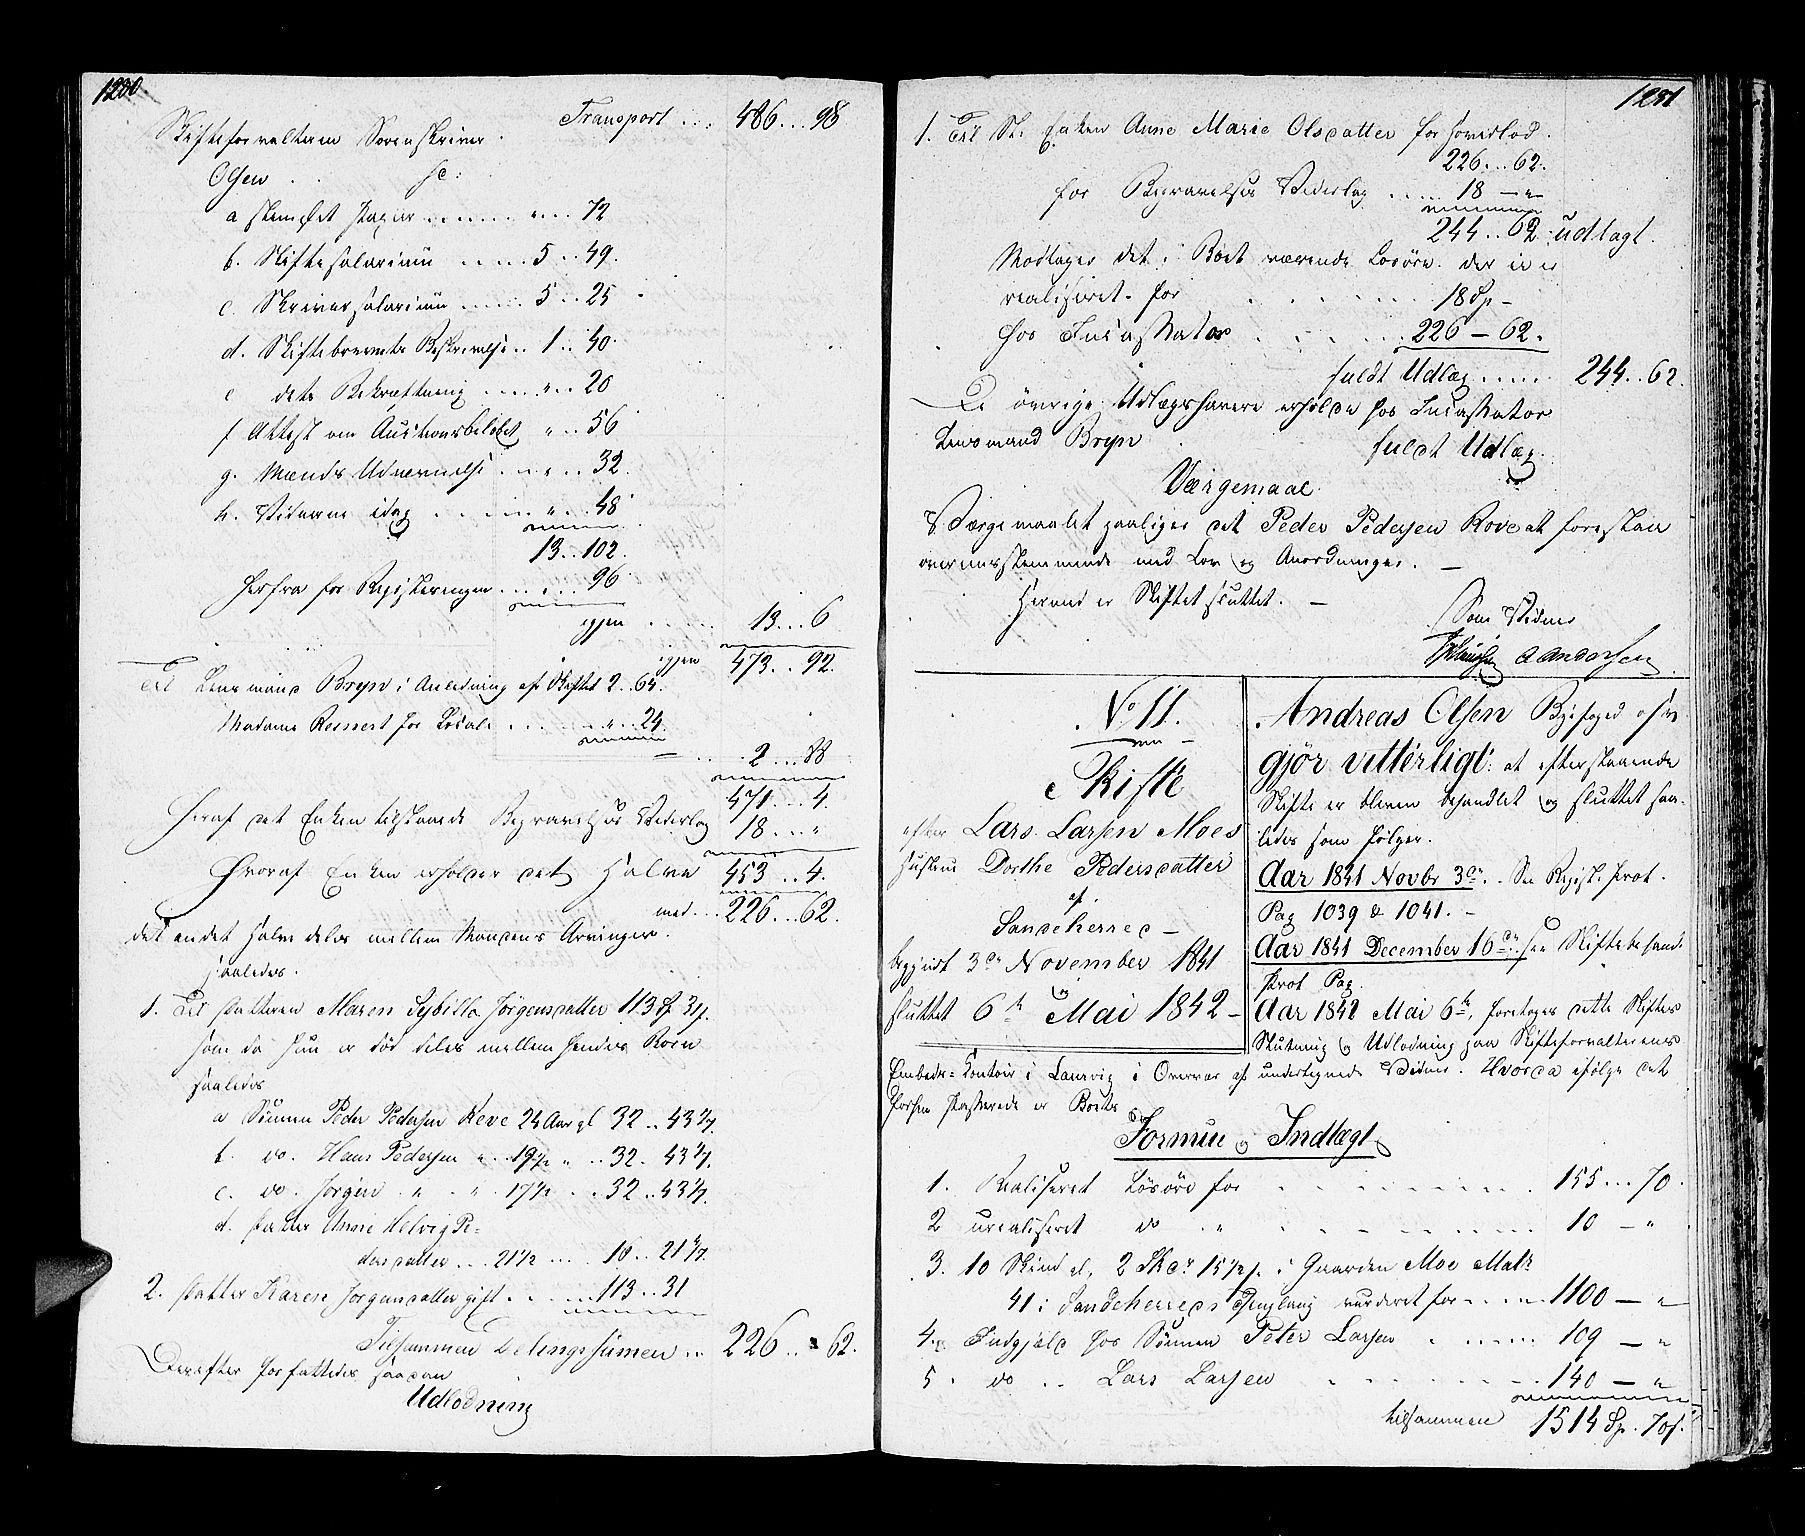 1280.
Transport . . . 486 . . 98
Skifteforvalteren Sorenskriver
Olsen . . sc:
a stemplet Papir . . . . . " . . 72
b. Skiftesalarium . . . . 5 . . 49.
c. Skriversalarium . . . . 5 . . 25
d. Skiftebrevets Beskrivelse . . 1 . . 40.
e dets Bekræftning . . . . " . . 20
f Attest om Auctionsbeløbet " . . 56
g. Mænds Udnævnelse . . " . . 32.
h. Vidnerne idag . . . . " . . 48
13 . . 102.
Herfra for Registeringen . . . . . 96
igjen . . . . 13 . . . 6
igjen 473 . . 92.
Til Lensmand Bryn i Anledning af Skiftet 2 . . 64.
Madame Rennert for Locale . . . . " . . 24.
2 . . . 88
471 . . . 4.
Heraf det Enken tilstaaede Begravelses Vederlag 18 . . . "
Hvoraf Enken erholder det Halve 453 . . 4.
med . . . 226 . . . 62.
det andet Halve deles mellem Mandens Arvinger
saaledes.
1. Til Datteren Maren Sybilla Jørgensdatter 113 Sp 31 s.
som da hun er død deles mellem hendes Børn
saaledes
a Sønnen Peder Pedersen Reve 24 Aar gl 32 . . 43 1/7.
b. do. Hans Pedersen " . . 19 1/2 " . . 32 . 43 1/7.
c. do. Jørgen . " . " . 17 1/2 . . 32 . . 43 1/7.
d. Datter Anne Helvig Pe-
dersdatter . . . 21 1/2 . . . 16 . . 21 4/7.
2. Datter Karen Jørgensdatter gift . . . . 113 . . 31
Tilsammen Delingssummen . . 226 . . 62.
Derefter forfattedes saadan
Udlodning
1281
1. Til St. Enken Anne Marie Olsdatter for Hovedlod.
226 . . . 62.
for Begravelses Vederlag . . . . 18 — "
244 . . 62. udlagt.
Modtager det i Boet værende Løsøre der ei er
realiseret for . . . . . 18 Sp —
hos Incassator . . . . . 226 — 62.
fuldt Udlæg . . . . . 244 . . 62.
De øvrige Udlægshavere erholde hos Incassator
Lensmand Bryn . fuldt Udlæg.
Værgemaal
Værgemaalet paaligger det Peder Pedersen Rove at forestaa
overensstemmende med Lov og Anordninger. —
Hermed er Skiftet sluttet. —
Som Vidner
A Andersen
No 11.
Skifte
efter Lars Larsen Moes
Hustrue Dorthe Pedersdatter
af
Sandeherred —
begyndt 3de November 1841
og
sluttet 6te Mai 1842 —
Andreas Olsen Byfoged &c
gjør vitterligt: at efterstaaende
Skifte er bleven behandlet og sluttet saa-
ledes som følger.
Aar 1841 Novbr 3de . . See Regist. Prot.
Pag 1039 & 1041. —
Aar 1841 December 16de see Skiftebehand.
Prot Pag.
Aar 1842 Mai 6te, foretages dette Skiftes
Slutning og Udlodning paa Skifteforvalterens
Embeds-Contoir i Laurvig i Overvær af undertegnede Vidner. Hvorda ifølge det
forhen Passerede er Boets
Formue og Indtægt
1. Realiseret Løsøre for . . . . . . . 155 . . . 70.
2 urealiseret do " . . . . . . 10 — "
3. 10 Skind gl. 2 Skr 15 1/2 s. i Gaarden Moe Matr
41 i Sandeherreds Thinglaug vurderet for . . . . 1100 — "
4. Indgjeld hos Sønnen Peter Larsen . . . . . 109 — "
5. do . . Lars Larsen . . . . . . 140 — "
tilsammen 1514 Sp. 70 s.